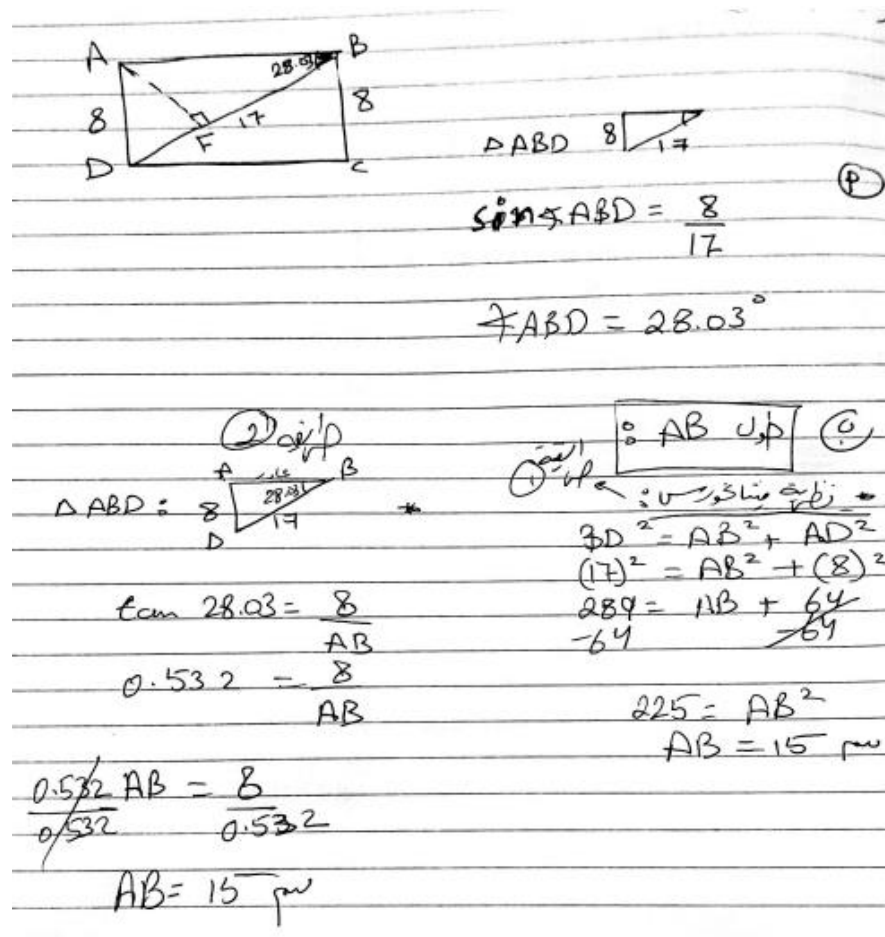 A B
28.03
8 17 8
F
D C
△ABD 8 17
أ
sin∢ABD = 8/17
∢ABD = 28.03°
ب
طول AB :
* نظرية فيتاغورس :
الطريقة 1
BD² = AB² + AD²
(17)² = AB² + (8)²
289 = AB + 64
-64 -64
225 = AB²
AB = 15 سم
طريقة 2
*
△ABD : 8 17
A B
28.03
D
tan 28.03 = 8/AB
0.532 = 8/AB
0.532 AB/0.532 = 8/0.532
AB = 15 سم